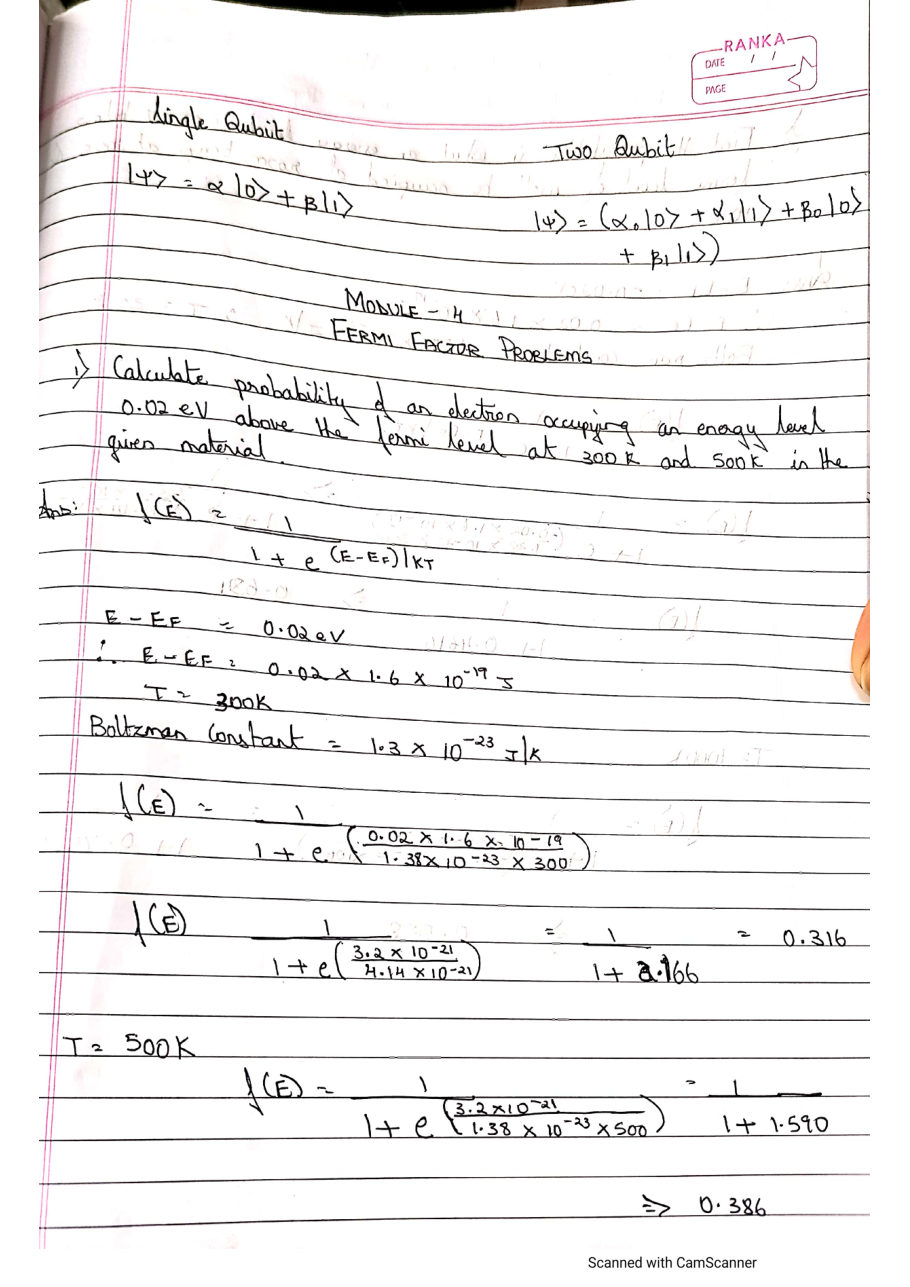 RANKA
DATE / /
PAGE
Single Qubit
Two Qubit
|ψ> = α |0> + β|1>
|ψ> = (α₀|0> + α₁|1> + β₀|0>
+ β₁|1>)
MODULE - 4
FERMI FACTOR PROBLEMS
1) Calculate probability of an electron occupying an energy level
0.02 eV above the fermi level at 300K and 500K in the
given material.
Ans: f(E) = 1
1 + e (E-EF)|KT
E - EF = 0.02 eV
∴ E - EF = 0.02 × 1.6 × 10⁻¹⁹ J
T = 300K
Boltzman Constant = 1.3 × 10⁻²³ J|K
f(E) = 1
1 + e (0.02 × 1.6 × 10-19 / 1.38×10-23 × 300)
f(E) 1 = 1 = 0.316
1 + e (3.2 × 10-21 / 4.14 × 10-21) 1 + 2.166
T = 500K
f(E) = 1 = 1
1 + e (3.2×10-21 / 1.38 × 10-23 ×500) 1 + 1.590
=> 0.386
Scanned with CamScanner